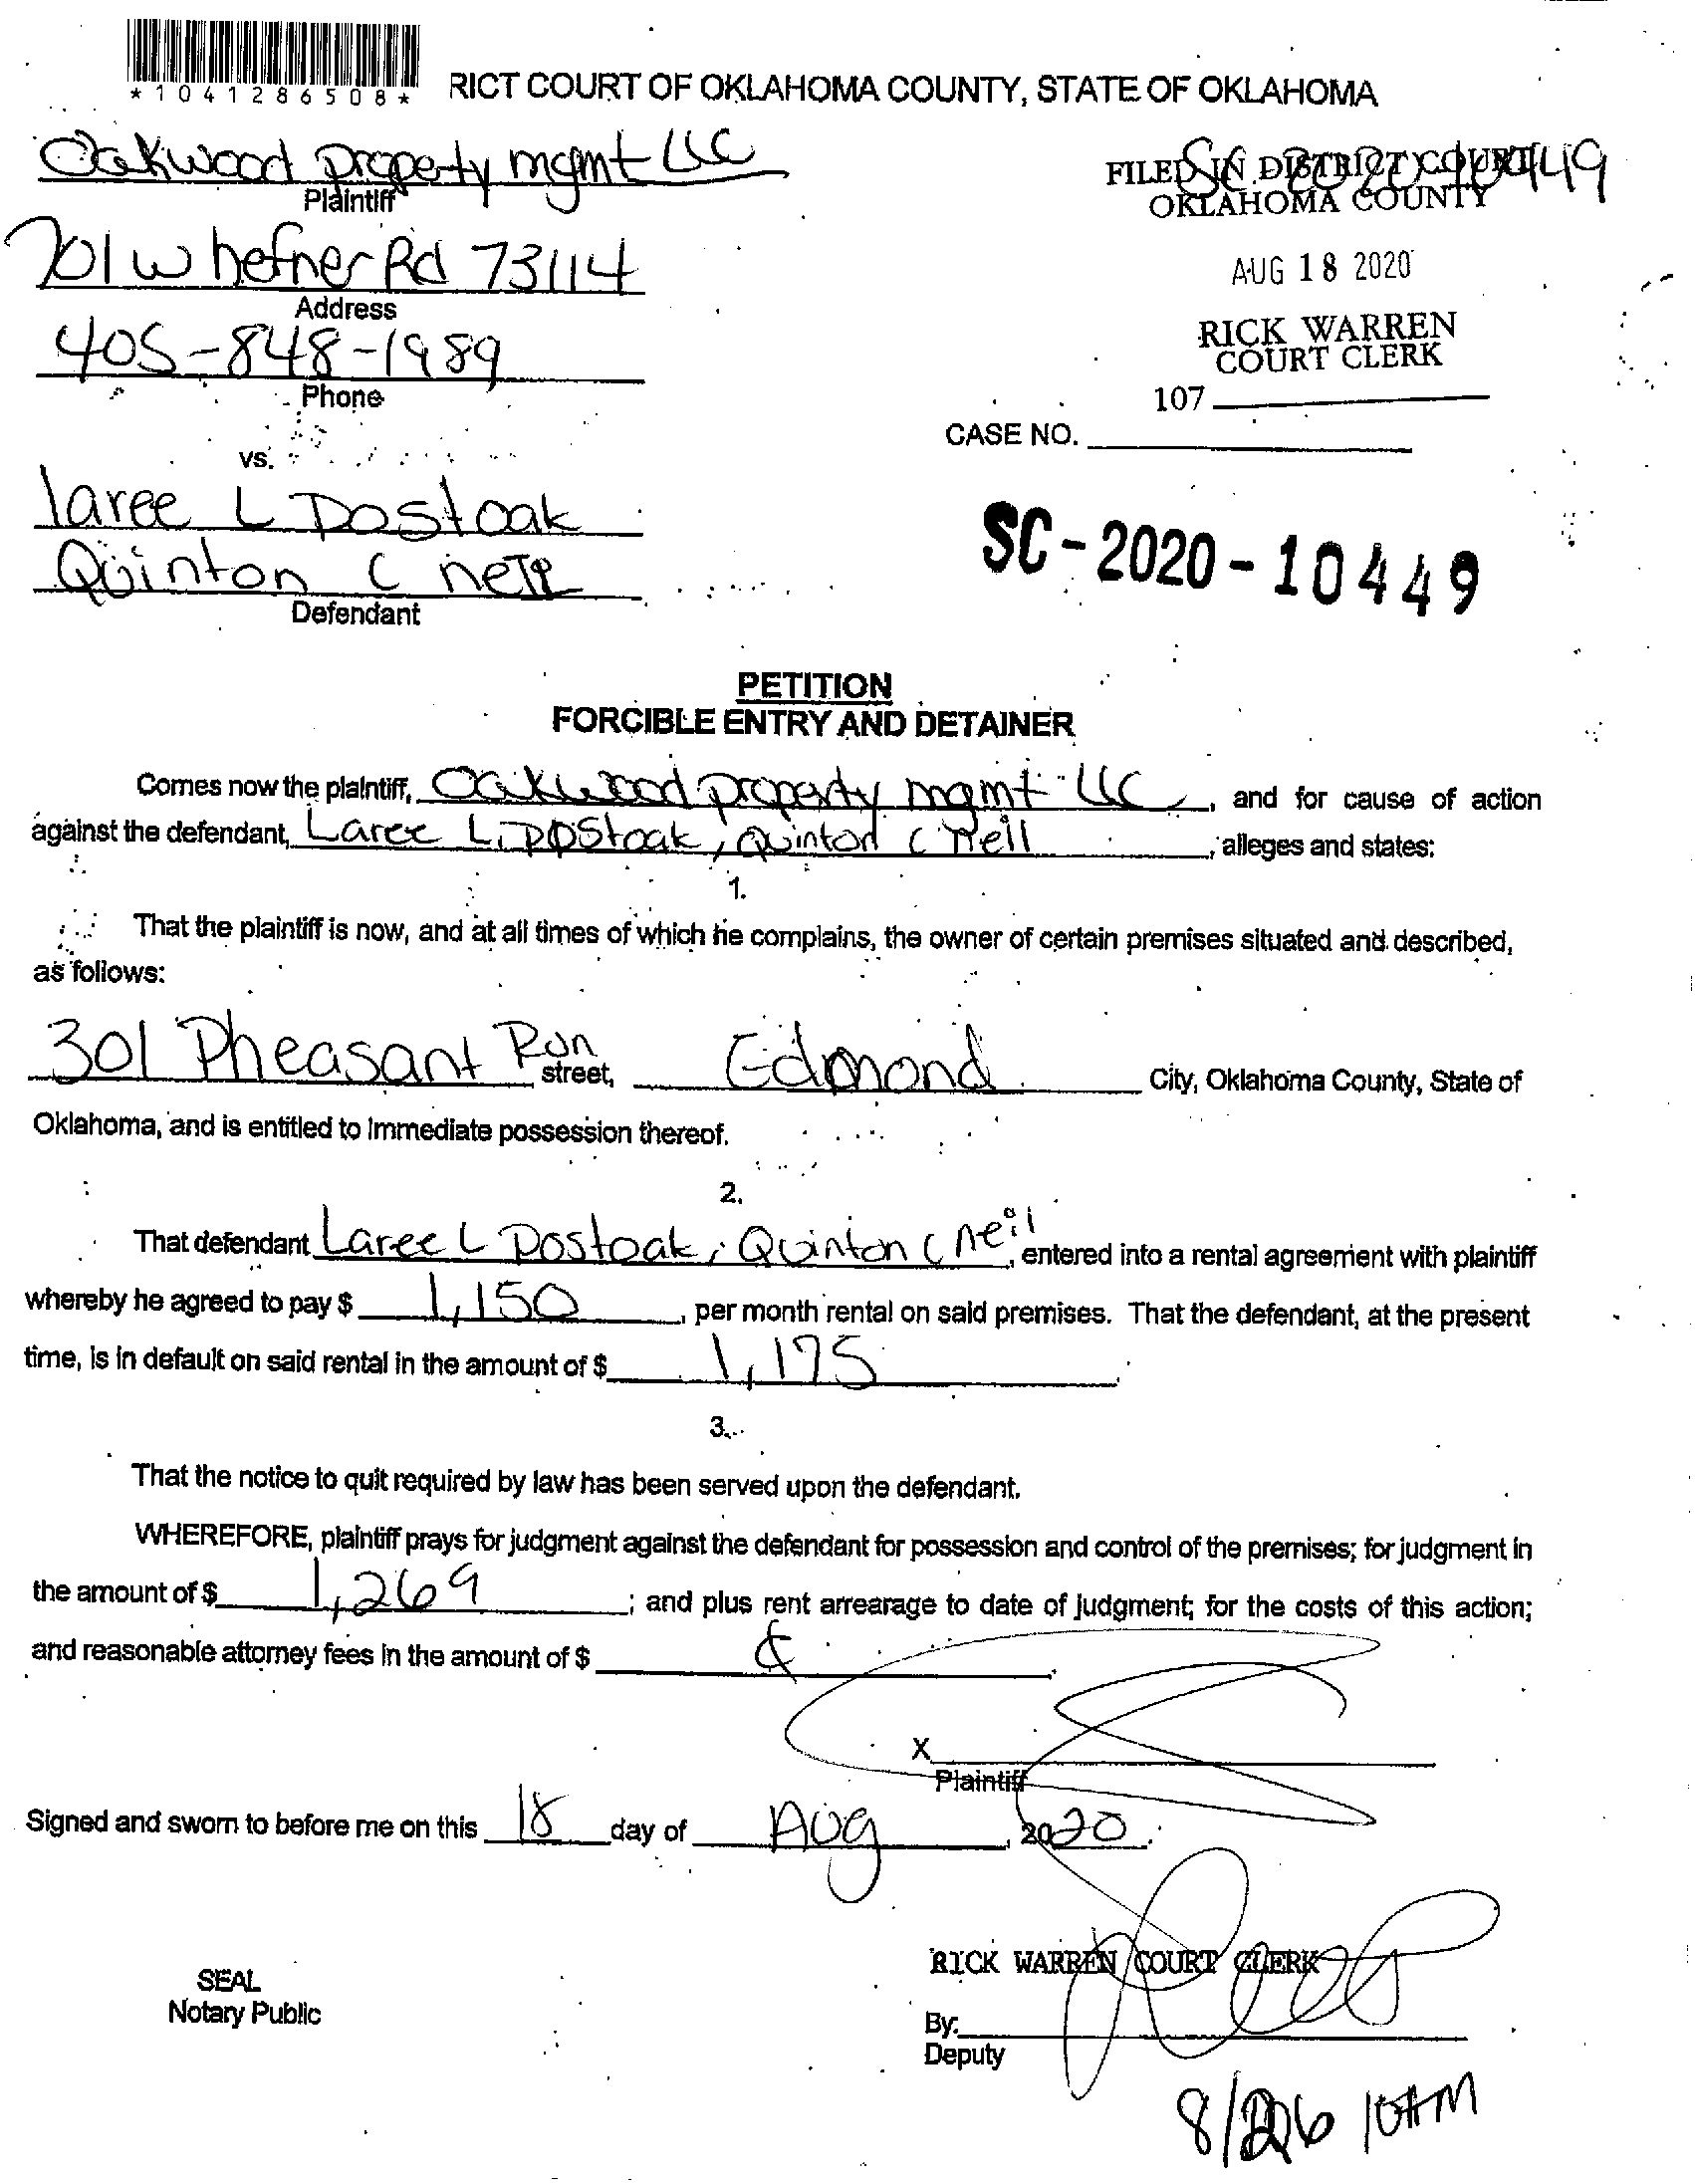 *1041286508*
RICT COURT OF OKLAHOMA COUNTY, STATE OF OKLAHOMA
Oakwood property mgmt LLC
Plaintiff
SC 2020 10449
FILED IN DISTRICT COURT
OKLAHOMA COUNTY
701 W hefner Rd 73114
Address
AUG 18 2020
405-848-1989
Phone
RICK WARREN
COURT CLERK
107
CASE NO.
vs.
laree L Postoak
Quinton C neil
Defendant
SC-2020-10449
PETITION
FORCIBLE ENTRY AND DETAINER
Comes now the plaintiff, Oakwood property mgmt LLC, and for cause of action
against the defendant, Laree L. Postoak, Quinton C Neil, alleges and states:
1.
That the plaintiff is now, and at all times of which he complains, the owner of certain premises situated and described,
as follows:
301 Pheasant Run street, Edmond City, Oklahoma County, State of
Oklahoma, and is entitled to immediate possession thereof.
2.
That defendant Laree L Postoak, Quinton C neil, entered into a rental agreement with plaintiff
whereby he agreed to pay $ 1,150, per month rental on said premises. That the defendant, at the present
time, is in default on said rental in the amount of $ 1,175.
3.
That the notice to quit required by law has been served upon the defendant.
WHEREFORE, plaintiff prays for judgment against the defendant for possession and control of the premises; for judgment in
the amount of $ 1,269; and plus rent arrearage to date of judgment; for the costs of this action;
and reasonable attorney fees in the amount of $
X
Plaintiff
Signed and sworn to before me on this 18 day of Aug, 2020.
RICK WARREN COURT CLERK
SEAL
Notary Public
By:
Deputy
10AM